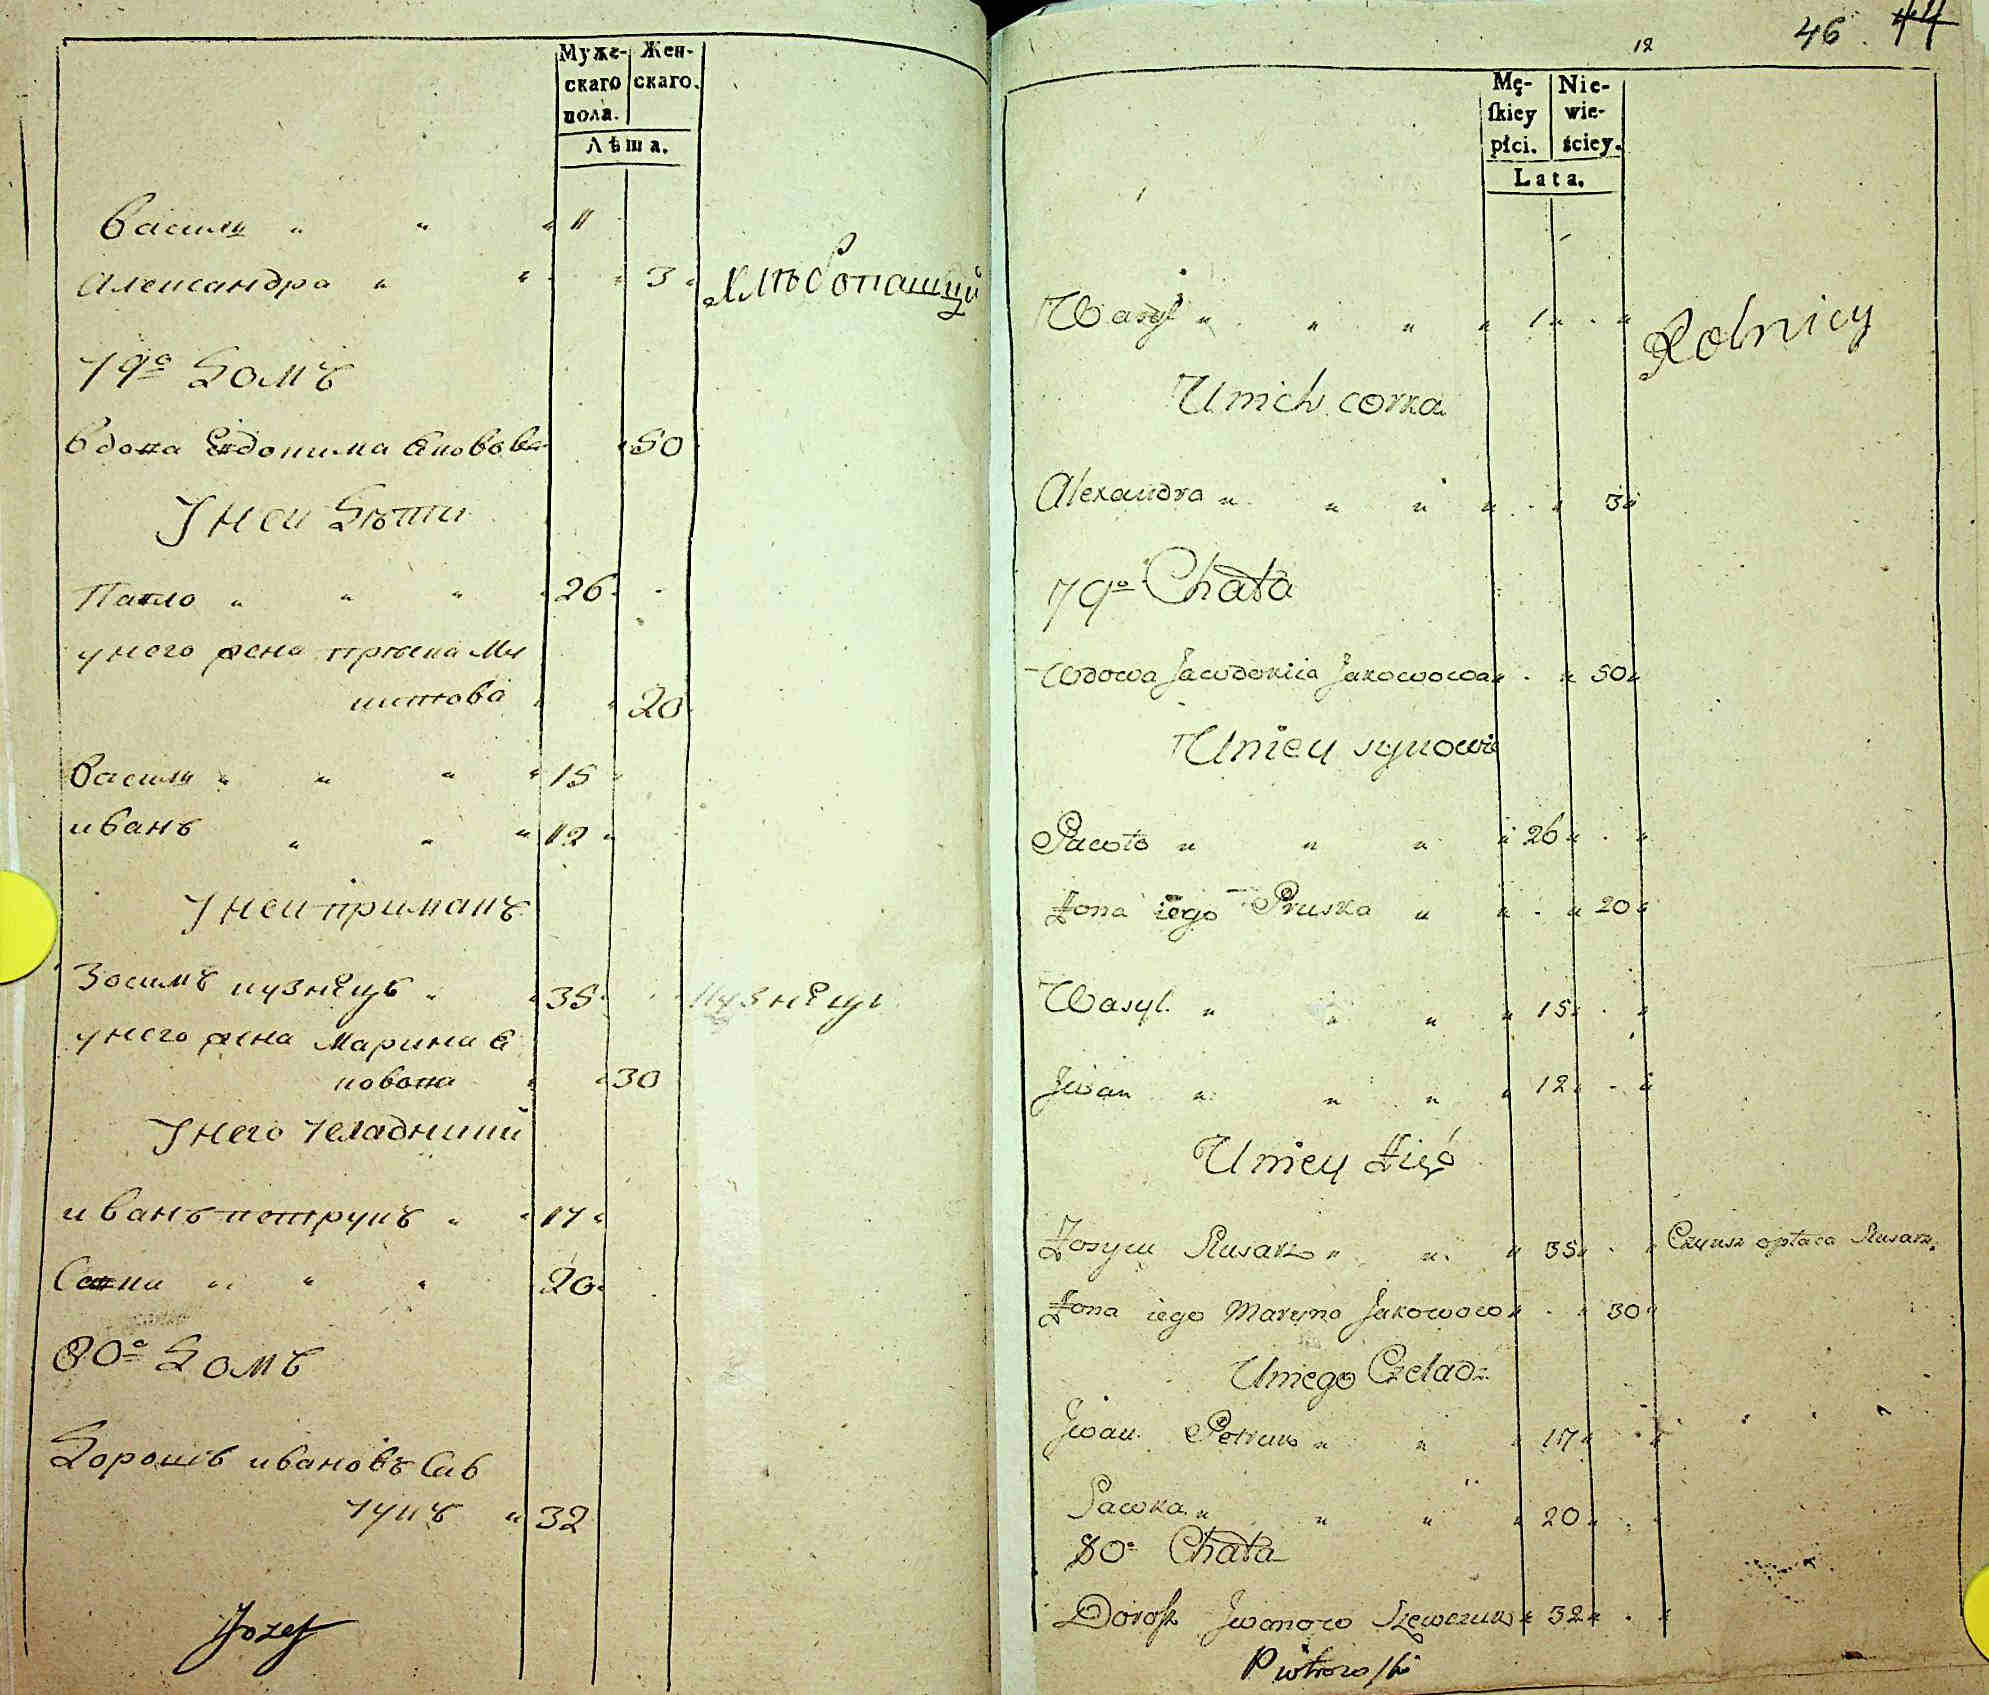 Муже- Жен-
скаго скаго.
пола.
Лѣта.
Василь " " " 11
Александра " " " 3 " Хлѣбопашцы
79º Домъ
Вдова Евдокима Якововa 50
У неи Дѣти
Павло " " " 26
у него жена Првска Ми
китова " " 20
Василь " " " 15 "
иванъ " " " 12 "
У неи примакъ
Зосимъ кузнецъ " " 35 " кузнецъ
у него жена Марина Я
ковова " " 30
У него челадники
иванъ петрукъ " " 17 "
Савка " " " 20 "
80º Домъ
Дорошъ ивановъ
чукъ " 32
Jozef
12 46 44
Mę- Nie-
skiey wie-
płci. ściey.
Lata.
Wasyl " " " " 1 " . " Rolnicy
U nich corka
Alexandra " " " " . " 3 "
79º Chata
Wdowa Jawdokiia Jakowowa " . " 50 "
U niey synowie
Pawło " " " " 26 " . "
Żona iego Pruska " " . " 20 "
Wasyl " " " " 15 " . "
Jwan " " " " 12 " . "
U niey Zięć
Zosym Slusarz " " " 35 " . " Czynsz opłaca Slusarz.
Żona iego Maryna Jakowow " . " 30 "
U niego Czeladz
Jwan Petruk " " " 17 " . "
Sawka " " " " 20 " . "
80º Chata
Dorosz Jwanow Szewczuk " 32 " . "
Piotrowski